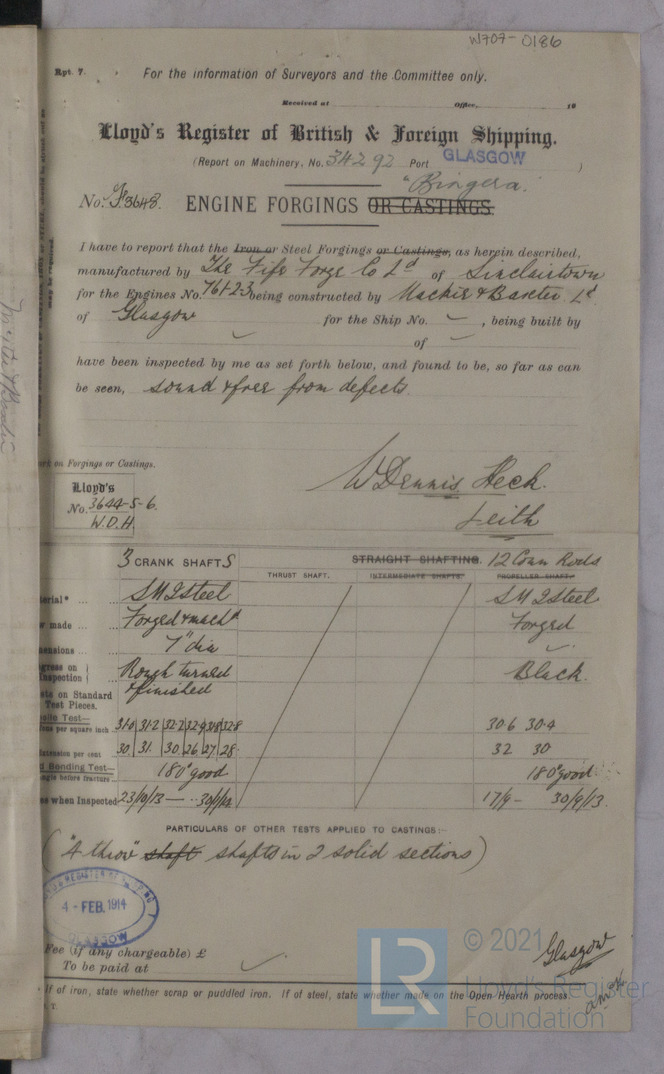 W707-0186
Rpt. 7.
For the information of Surveyors and the Committee only.
Received at Office, 18
Lloyd's Register of British & Foreign Shipping.
(Report on Machinery, No. 34292 Port GLASGOW )
"Bingera."
No. 3648. ENGINE FORGINGS OR CASTINGS.
I have to report that the Iron or Steel Forgings or Castings, as herein described,
manufactured by The Fife Forge Co Ld of Sinclairtown
for the Engines No. 761-2-3 being constructed by Mackie & Baxter Ld
of Glasgow for the Ship No. , being built by
of
have been inspected by me as set forth below, and found to be, so far as can
be seen, sound & free from defects.
on Forgings or Castings.
W Dennis Heck.
Leith
Lloyd's
No. 3644-5-6.
W.D.H.
3 CRANK SHAFTS STRAIGHT SHAFTING. 12 Conn Rods
THRUST SHAFT. INTERMEDIATE SHAFTS. PROPELLER SHAFT.
erial* ... SM I Steel SM I Steel
w made ... Forged & machd Forged
ensions ... 7" dia
gress on Inspection Rough turned & finished Black.
on Standard Test Pieces.
Test—
per square inch 31.6 31.2 32.2 32.4 31.8 32.8 30.6 30.4
xtension per cent 30 31. 30 26 27 28. 32 30
d Bending Test—
ngle before fracture 180° good 180° good
es when Inspected 23/10/13 — 30/1/14 17/9 — 30/9/13.
PARTICULARS OF OTHER TESTS APPLIED TO CASTINGS:—
("4 throw" shaft shafts in 2 solid sections)
4 - FEB. 1914
GLASGOW
Fee (if any chargeable) £
To be paid at
Glasgow
* If of iron, state whether scrap or puddled iron. If of steel, state whether made on the Open Hearth process.
LR
© 2021
Lloyd's Register
Foundation